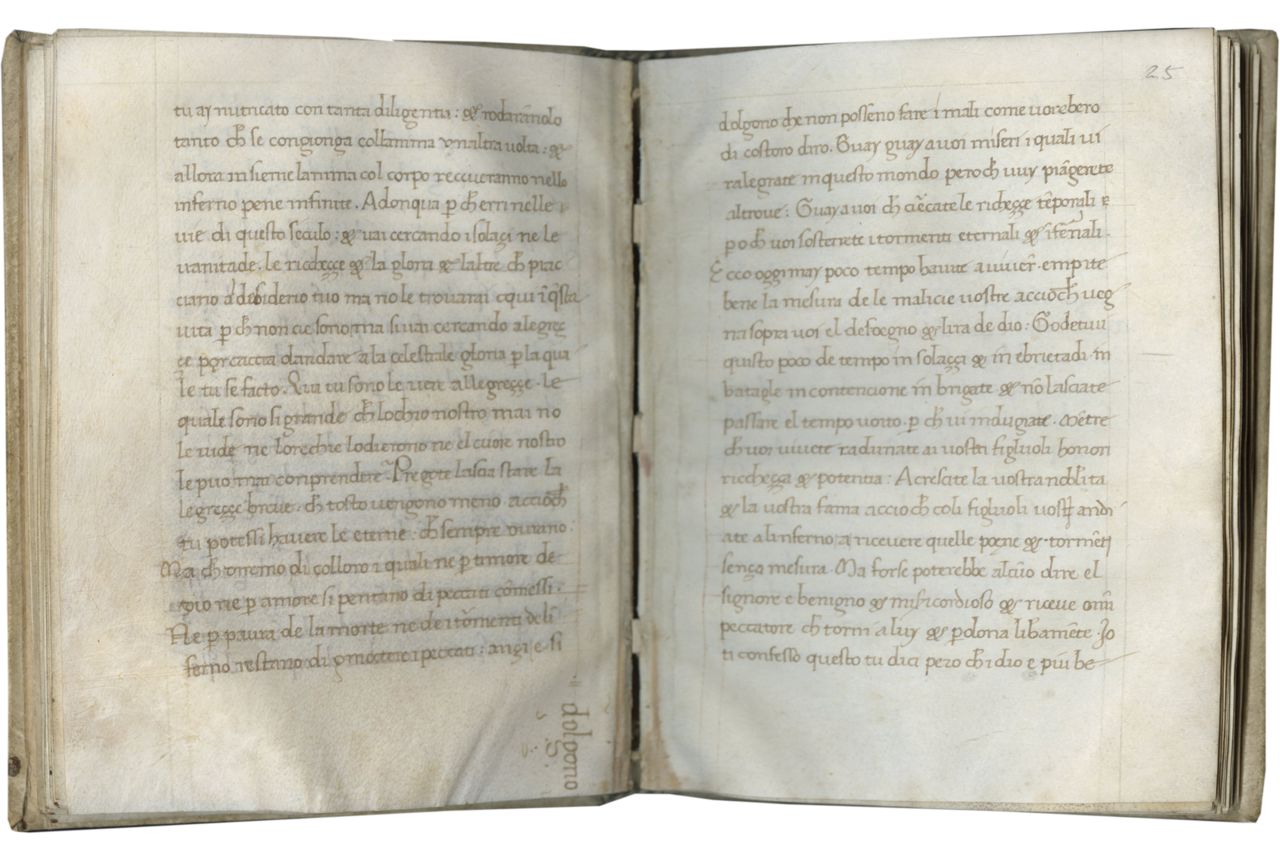 tu ai nutricato con tanta diligentia : & rodarānolo
tanto ch̄ se congionga collanima unaltra uolta : &
allora insieme lanima col corpo receueranno nello
inferno pene infinite . Adonqua p ch̄ erri nelle
uie di questo seculo : & uai cercando i solaçi ne le
uanitade . le richeçe & la gloria & laltre ch̄ piac
ciano al desiderio tuo ma no le trouarai cqui ī q̄sta
uita p ch̄ non cie sono, ma si uai cercando alegreç
çe porcaccia dandare a la celestiale gloria p la qua
le tu se facto . Qui tu sono le uere allegreçe . le
quale sono si grande ch̄ lochio nostro mai no
le uide ne lorechie lodierono ne el cuore nostro
le puo mai conprendere . Pregote lascia stare la
legreçe breue . ch̄ tosto uengono meno . accioch̄
tu potessi hauere le eterne : ch̄ sempre durano .
Ma ch̄ diremo di colloro i quali ne p timore de
dio ne p amore si pentano di peccati cōmessi .
Ne p paura de la morte ne de i tōrmenti de lī
ferno restano di cōmectere i peccati : angi e si
dolgono
25
dolgono che non posseno fare i mali come uorebero
di costoro diro . Guay guay a uoi miseri i quali ui
ralegrate in questo mondo pero ch̄ uuy piāgerete
altroue : Guay a uoi ch̄ ciēcate le richeççe tēporali
po ch̄ uoi sosterrete i tormenti eternali & īfernali .
Ecco oggi may poco tempo hauite a uiuer̄ . empite
bene la mesura de le malicie uostre accioch̄ ueg
na sopra uoi el desdegno & lira de dio : Godetiui
quisto poco de tempo in solaççi & in ebrietadi . in
batagle in contencione in brigate & nō lasciate
passare el tempo uoito . p ch̄ ui indugiate . Mētre
ch̄ uoi uiuete radunate ai uostri figliuoli honori
richeçça & potentia : Acrescite la uostra nobilita
& la uostra fama accioch̄ coli figliuoli uostri andi
ate alinferno a riceuere quelle poene & tormēti
sença mesura . Ma forse poterebbe alcūo dire el
signore e benigno & misicordioso & riceue omi
peccatore ch̄ torni a luy & pdona libamēte . Io
ti confesso questo tu dici pero ch̄ idio e piu be